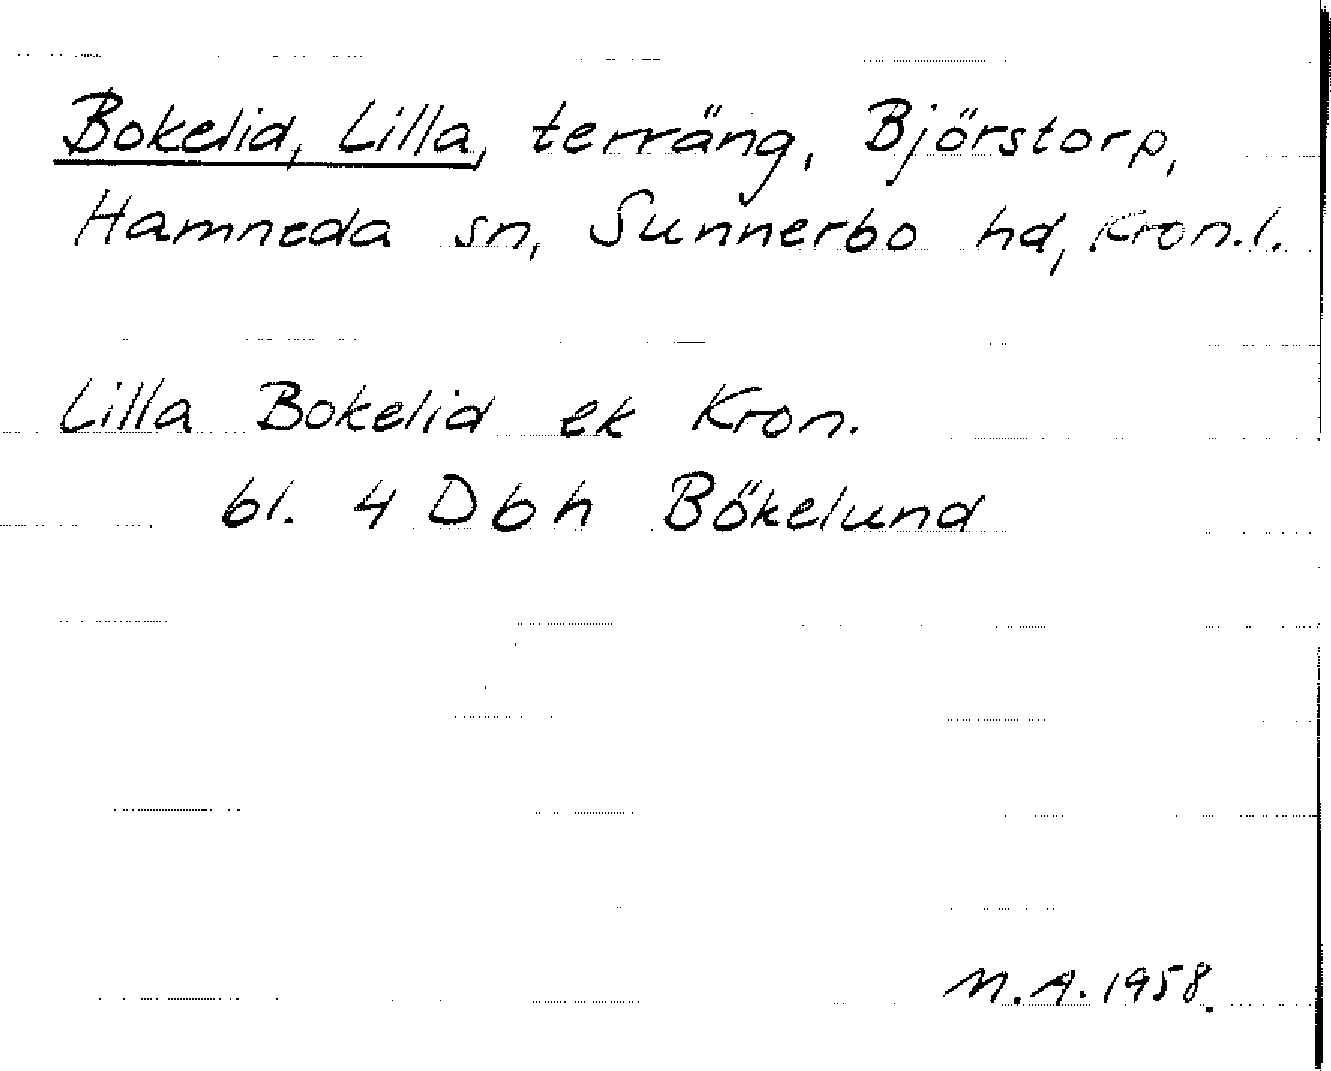 Bokelid, Lilla, terräng, Björstorp,
Hamneda sn, Sunnerbo hd, Kron.l.
Lilla Bokelid ek Kron.
bl. 4 Dbh Bökelund
M.A. 1958.